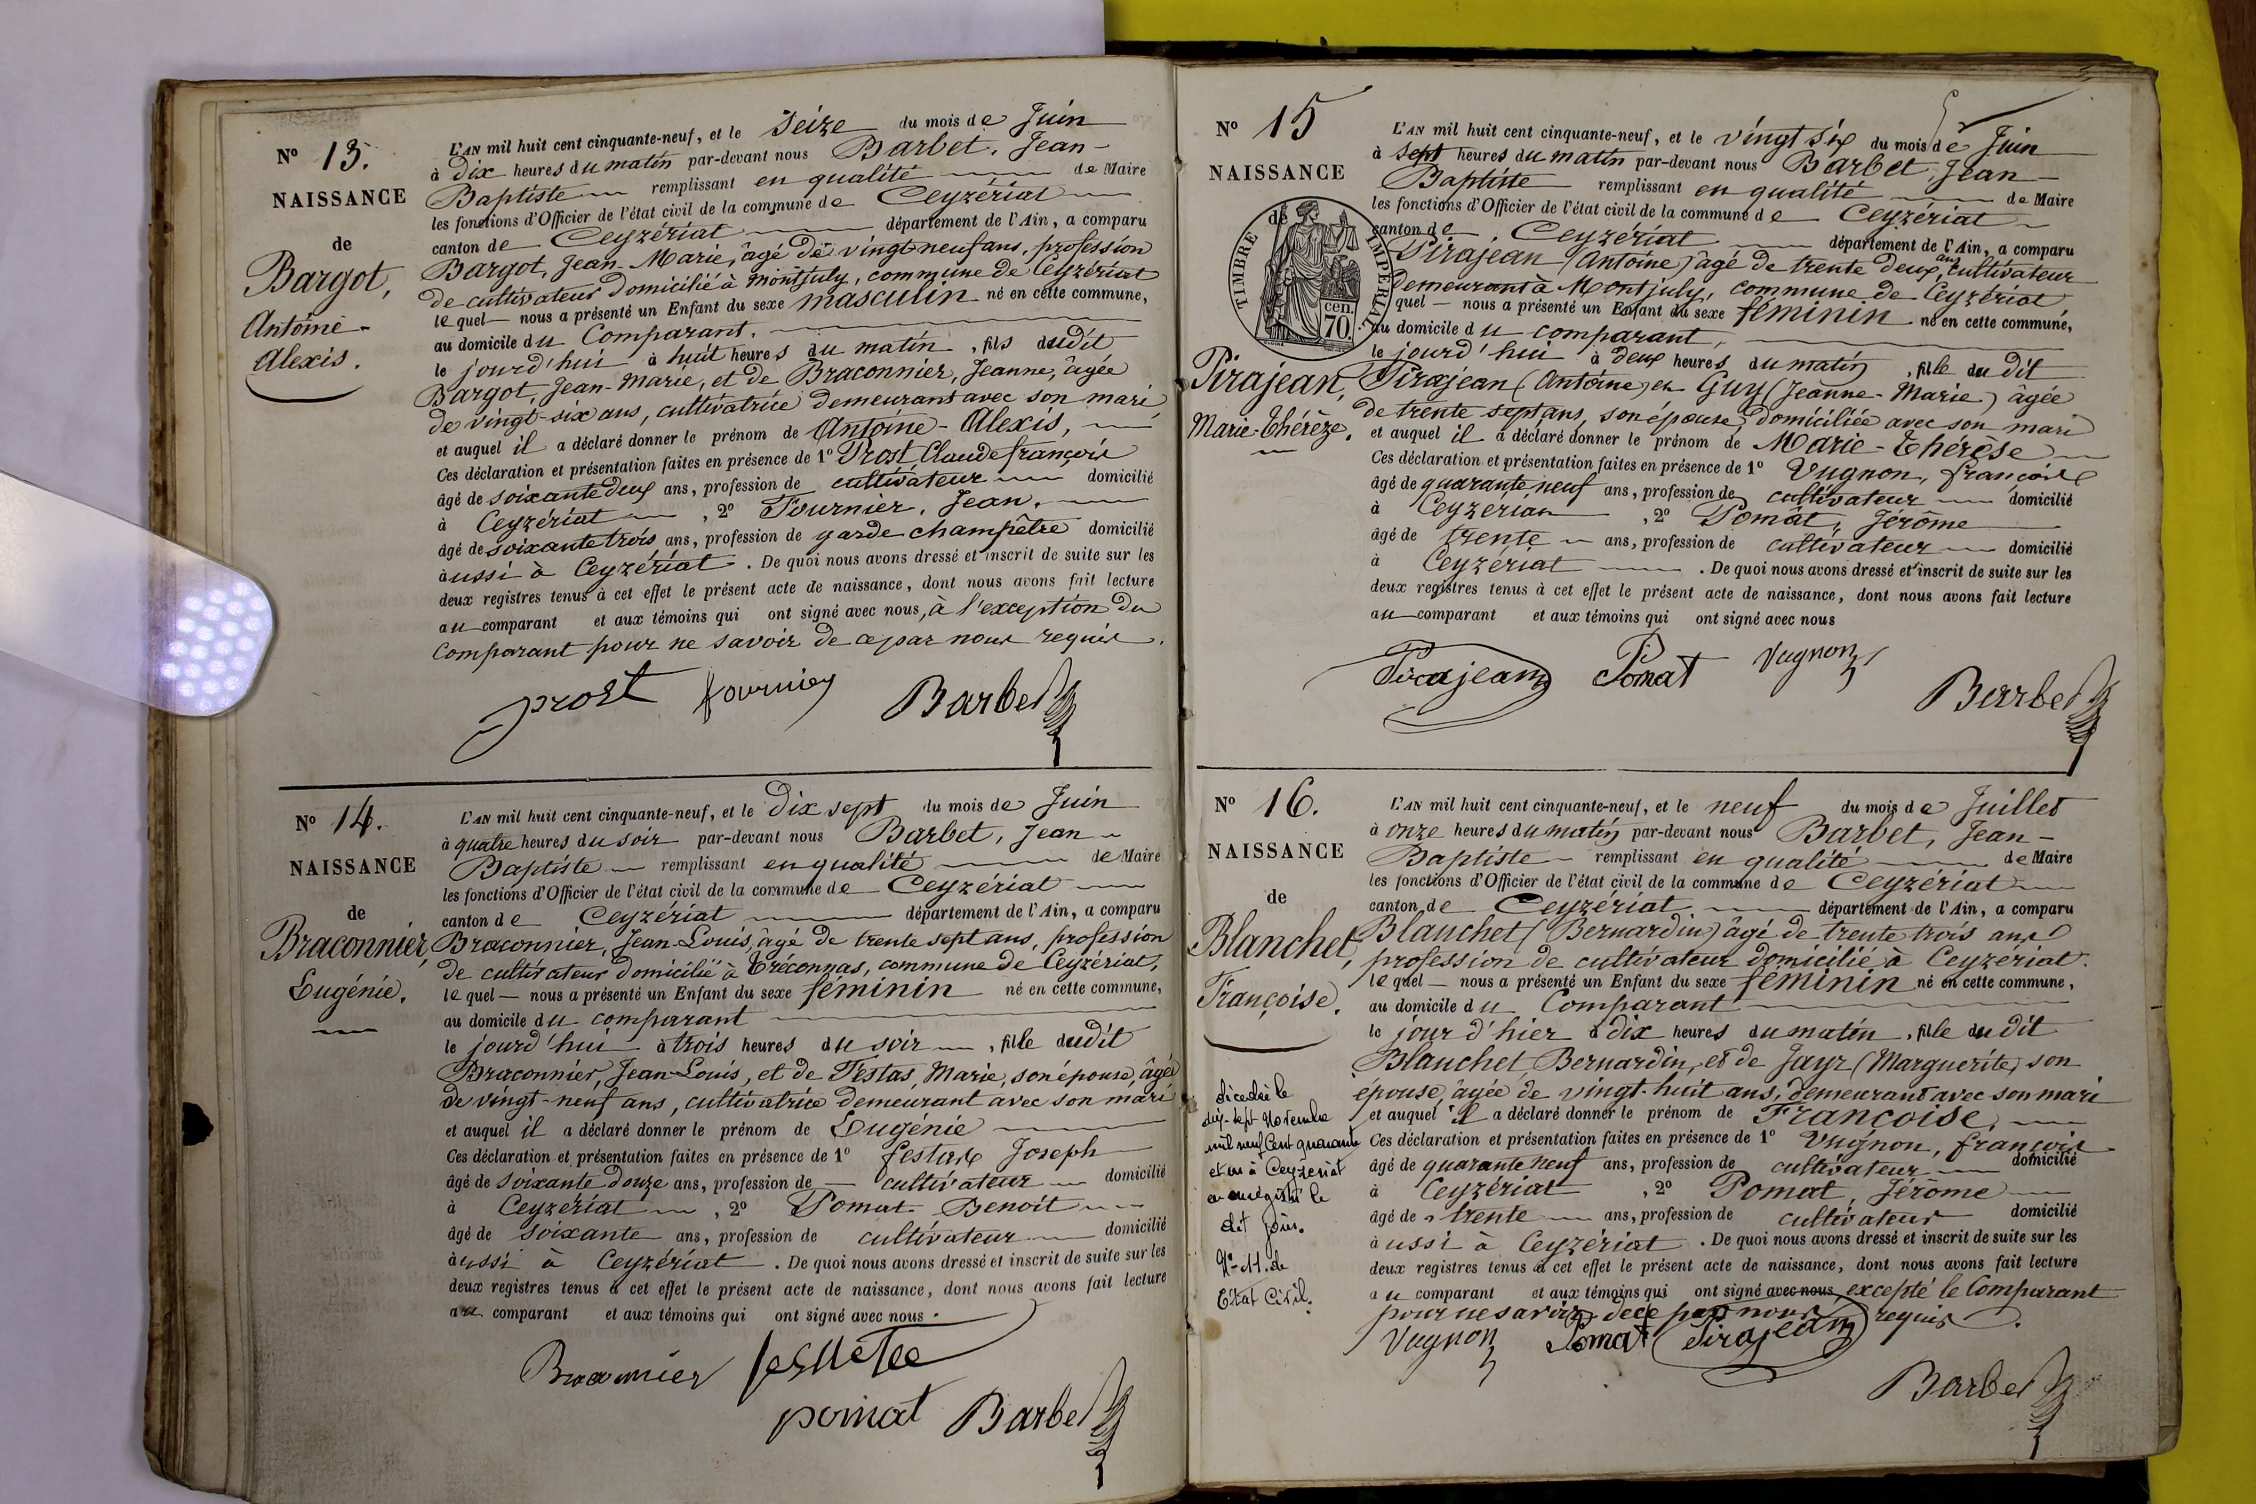 N° 13.
NAISSANCE
de
Bargot,
Antoine-
Alexis.
L'AN mil huit cent cinquante-neuf, et le Seize du mois de Juin
à dix heures du matin par-devant nous Barbet, Jean-
Baptiste remplissant en qualité de Maire
les fonctions d'Officier de l'état civil de la commune de Ceyzériat
canton de Ceyzériat département de l'Ain, a comparu
Bargot, Jean-Marie, âgé de vingt-neuf ans, profession
de cultivateur domicilié à Montjuly, commune de Ceyzériat
lequel nous a présenté un Enfant du sexe masculin né en cette commune,
au domicile du Comparant.
le jourd'hui à huit heures du matin, fils dudit
Bargot, Jean-Marie, et de Braconnier, Jeanne, âgée
de vingt-six ans, cultivatrice demeurant avec son mari,
et auquel il a déclaré donner le prénom de Antoine-Alexis,
Ces déclaration et présentation faites en présence de 1° Prost Claude françois
âgé de soixante deux ans, profession de cultivateur domicilié
à Ceyzériat, 2° Fournier, Jean,
âgé de soixante trois ans, profession de garde champêtre domicilié
aussi à Ceyzériat. De quoi nous avons dressé et inscrit de suite sur les
deux registres tenus à cet effet le présent acte de naissance, dont nous avons fait lecture
au comparant et aux témoins qui ont signé avec nous, à l'exception du
comparant pour ne savoir de ce par nous requis.
prost fournier Barbet
N° 14.
NAISSANCE
de
Braconnier,
Eugénie.
L'AN mil huit cent cinquante-neuf, et le dix sept du mois de Juin
à quatre heures du soir par-devant nous Barbet, Jean
Baptiste remplissant en qualité de Maire
les fonctions d'Officier de l'état civil de la commune de Ceyzériat
canton de Ceyzériat département de l'Ain, a comparu
Braconnier, Jean-Louis, âgé de trente sept ans, profession
de cultivateur domicilié à Tréconnas, commune de Ceyzériat,
lequel nous a présenté un Enfant du sexe féminin né en cette commune,
au domicile du comparant
le jourd'hui à trois heures du soir, fille dudit
Braconnier, Jean-Louis, et de Festas, Marie, son épouse, âgée
de vingt-neuf ans, cultivatrice demeurant avec son mari
et auquel il a déclaré donner le prénom de Eugénie
Ces déclaration et présentation faites en présence de 1° Joseph
âgé de soixante douze ans, profession de cultivateur domicilié
à Ceyzériat, 2° Pomat Benoit
âgé de soixante ans, profession de cultivateur domicilié
aussi à Ceyzériat. De quoi nous avons dressé et inscrit de suite sur les
deux registres tenus à cet effet le présent acte de naissance, dont nous avons fait lecture
au comparant et aux témoins qui ont signé avec nous.
Braconnier
pomat Barbet
N° 15
NAISSANCE
de
TIMBRE IMPÉRIAL
70 cen.
Pirajean,
Marie-Thérèze.
L'AN mil huit cent cinquante-neuf, et le vingt six du mois de Juin
à sept heures du matin par-devant nous Barbet, Jean-
Baptiste remplissant en qualité de Maire
les fonctions d'Officier de l'état civil de la commune de Ceyzériat
canton de Ceyzériat département de l'Ain, a comparu
Pirajean (Antoine) âgé de trente deux ans, cultivateur
Demeurant à Montjuly, commune de Ceyzériat
quel nous a présenté un Enfant du sexe féminin né en cette commune,
au domicile du comparant,
le jourd'hui à deux heures du matin, fille du dit
Pirajean (Antoine) et Guy (Jeanne-Marie) âgée
de trente sept ans, son épouse, domiciliée avec son mari
et auquel il a déclaré donner le prénom de Marie-Thérèse
Ces déclaration et présentation faites en présence de 1° Vugnon, françois
âgé de quarante neuf ans, profession de cultivateur domicilié
à Ceyzériat, 2° Pomat, Jérôme
âgé de trente ans, profession de cultivateur domicilié
à Ceyzériat. De quoi nous avons dressé et inscrit de suite sur les
deux registres tenus à cet effet le présent acte de naissance, dont nous avons fait lecture
au comparant et aux témoins qui ont signé avec nous
Pirajean Pomat Vugnon
Barbet
N° 16.
NAISSANCE
de
Blanchet,
Françoise.
décédée le
dix-sept Novembre
mil neuf Cent quarante
et un à Ceyzeriat
enregistré le
dit jour.
de
Etat Civil.
L'AN mil huit cent cinquante-neuf, et le neuf du mois de Juillet
à onze heures du matin par-devant nous Barbet, Jean-
Baptiste remplissant en qualité de Maire
les fonctions d'Officier de l'état civil de la commune de Ceyzériat
canton de Ceyzériat département de l'Ain, a comparu
Blanchet (Bernardin) âgé de trente trois ans
profession de cultivateur domicilié à Ceyzériat.
lequel nous a présenté un Enfant du sexe féminin né en cette commune,
au domicile du Comparant
le jour d'hier à dix heures du matin, fille du dit
Blanchet Bernardin, et de Jayr (Marguerite) son
épouse, âgée de vingt-huit ans, demeurant avec son mari
et auquel il a déclaré donner le prénom de Françoise,
Ces déclaration et présentation faites en présence de 1° Vugnon, françois
âgé de quarante neuf ans, profession de cultivateur domicilié
à Ceyzériat, 2° Pomat, Jérôme
âgé de trente ans, profession de cultivateur domicilié
aussi à Ceyzériat. De quoi nous avons dressé et inscrit de suite sur les
deux registres tenus à cet effet le présent acte de naissance, dont nous avons fait lecture
au comparant et aux témoins qui ont signé avec nous, excepté le Comparant
pour ne savoir de ce par nous requis.
Vugnon Pomat Pirajean
Barbet